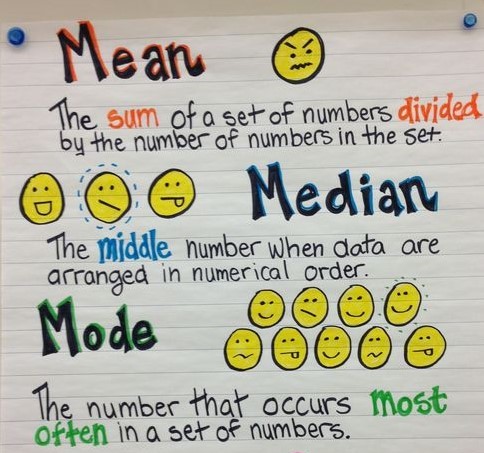 Mean
The sum of a set of numbers divided
by the number of numbers in the set.
Median
The middle number when data are
arranged in numerical order.
Mode
The number that occurs most
often in a set of numbers.